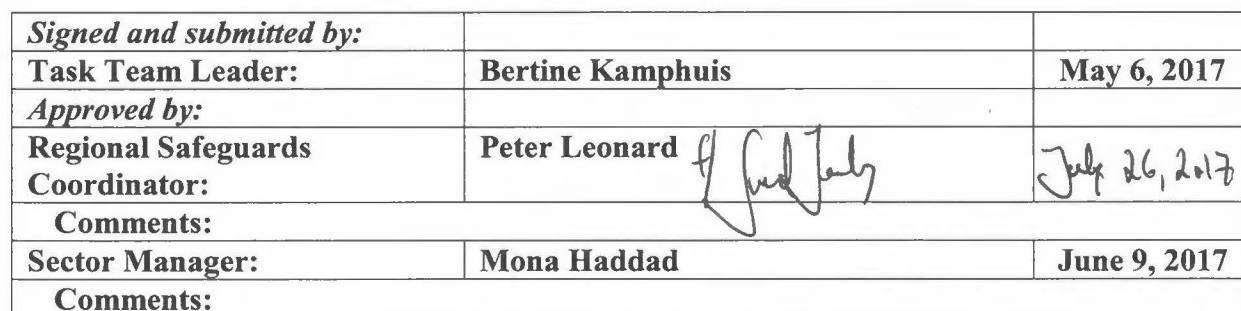 Signed and submitted by:
Task Team Leader: Bertine Kamphuis May 6, 2017
Approved by:
Regional Safeguards Peter Leonard July 26, 2017
Coordinator:
Comments:
Sector Manager: Mona Haddad June 9, 2017
Comments: